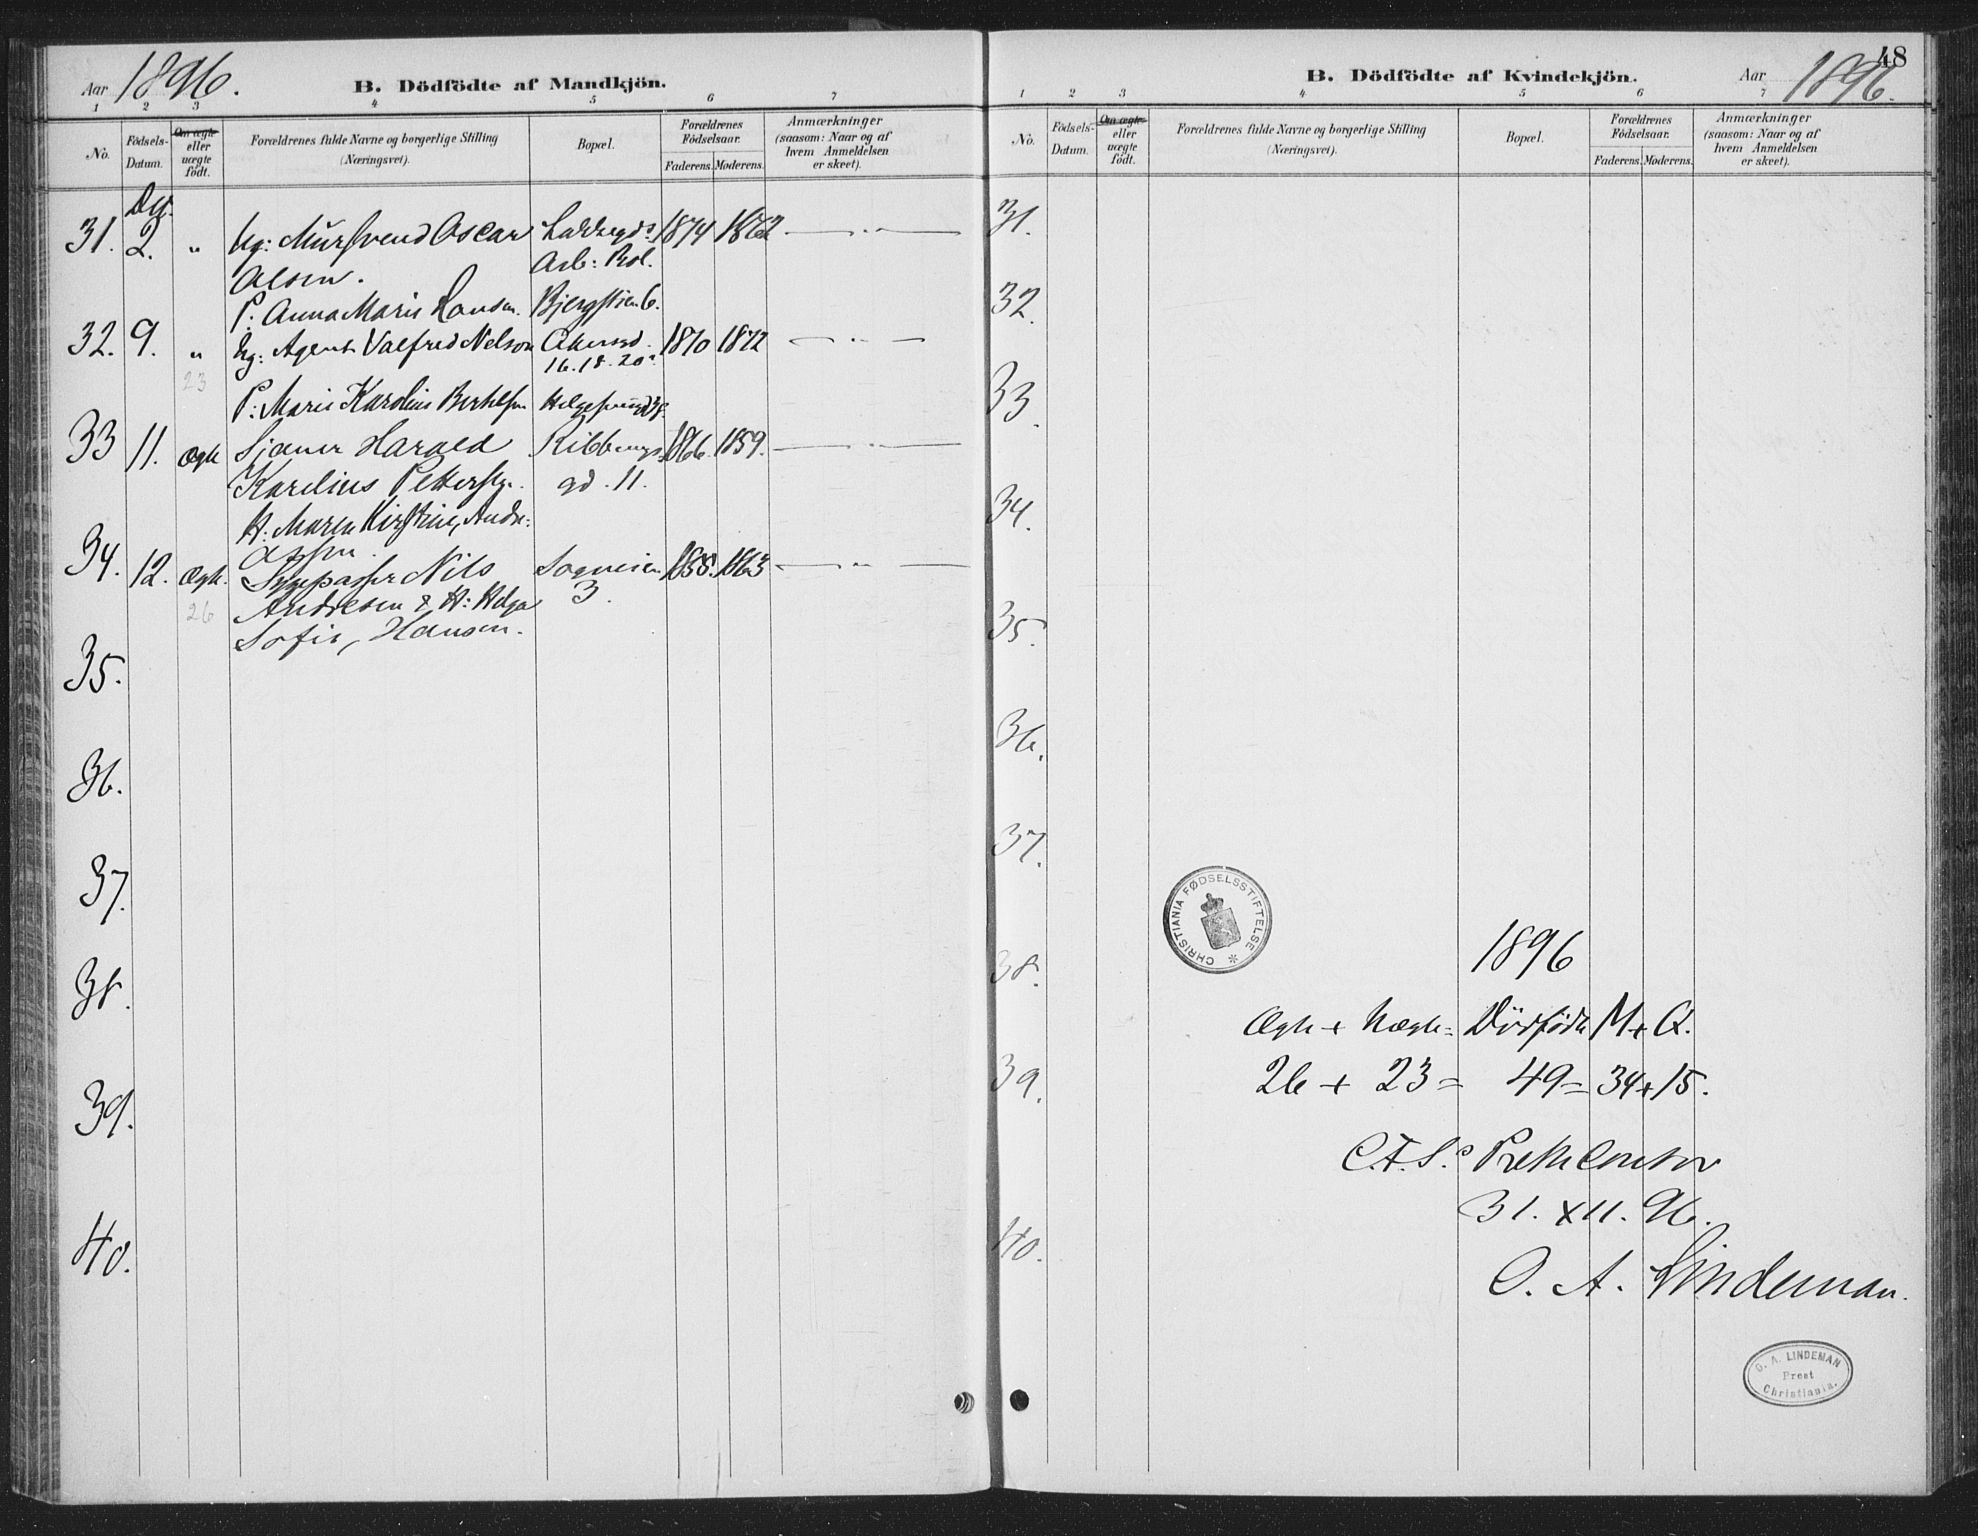 Aar 1896.
B. Dödfödte af Mandkjön.
1 2 3 4 5 6 7
No.
Födsels-Datum.
Om ægte eller uægte födt.
Forældrenes fulde Navne og borgerlige Stilling
(Næringsvei).
Bopæl.
Forældrenes Födselsaar.
Faderens. Moderens.
Anmærkninger
(saasom: Naar og af
hvem Anmeldelsen
er skeet).
31. 2. " Ug: Mursvend Oscar 1874 1862
Olsen. Arb: Bol.
P. Anna Marie Hansen. Bjergstien 6.
32. 9. " Ug: Agent Valfred Nelson Akersgd. 1870 1872
16. 18. 20.
23
P: Marie Karoline
33 11. Ægte Harald 1866. 1859.
Karelius gd. 11.
H: Maren Kirstine, Andr:
assen.
34. 12. Ægte. Nils Sognveien 1863
26 Andresen & H: Helga 3.
Sofie, Hansen.
35.
36.
37.
38.
39.
40.
48
B. Dödfödte af Kvindekjön.
Aar 1896.
1 2 3 4 5 6 7
No.
Födsels-Datum.
Om ægte eller uægte födt.
Forældrenes fulde Navne og borgerlige Stilling
(Næringsvei).
Bopæl.
Forældrenes Födselsaar.
Faderens. Moderens.
Anmærkninger
(saasom: Naar og af
hvem Anmeldelsen
er skeet).
31.
32.
33.
34.
35.
36.
37.
38.
39.
40.
CHRISTIANIA FØDSELSSTIFTELSE *
1896
Ægte + Uægte = Dødfødte M + Q.
26 + 23 = 49 = 34 + 15.
31. XII. 96.
O. A. Lindeman.
O. A. LINDEMAN
Prest
Christiania.